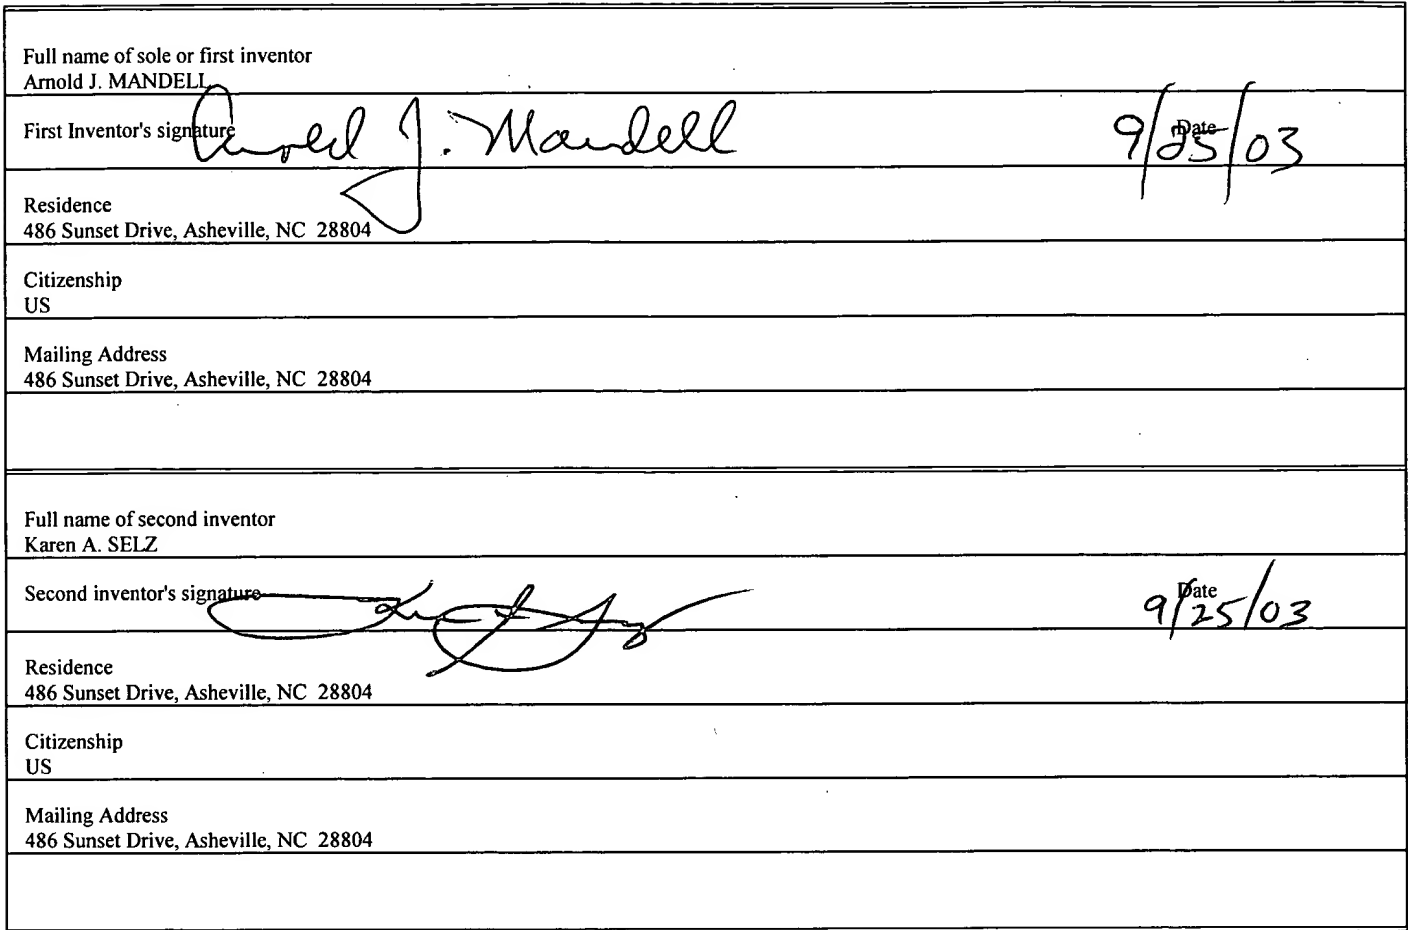 Full name of sole or first inventor
Arnold J. MANDELL
First Inventor's signature Arnold J. Mandell Date 9/25/03
Residence
486 Sunset Drive, Asheville, NC 28804
Citizenship
US
Mailing Address
486 Sunset Drive, Asheville, NC 28804
Full name of second inventor
Karen A. SELZ
Second inventor's signature Date 9/25/03
Residence
486 Sunset Drive, Asheville, NC 28804
Citizenship
US
Mailing Address
486 Sunset Drive, Asheville, NC 28804